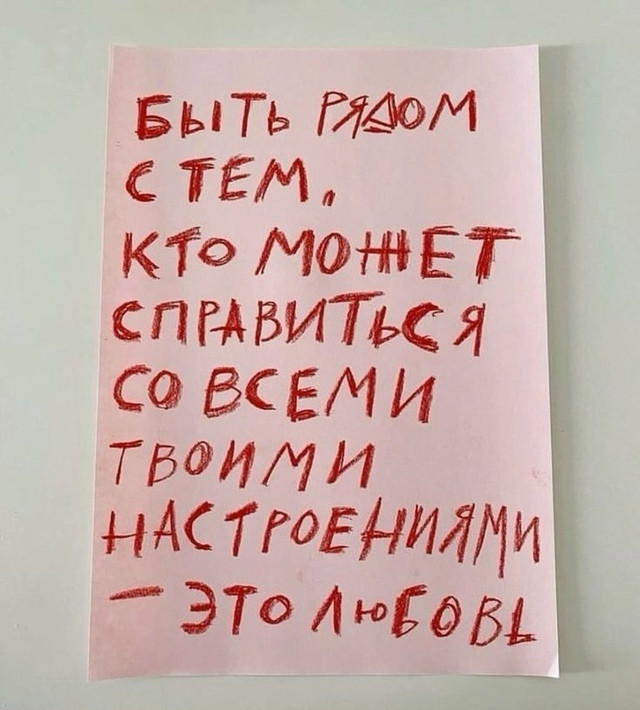 БЫТЬ РЯДОМ
С ТЕМ,
КТО МОЖЕТ
СПРАВИТЬСЯ
СО ВСЕМИ
ТВОИМИ
НАСТРОЕНИЯМИ
— ЭТО ЛЮБОВЬ